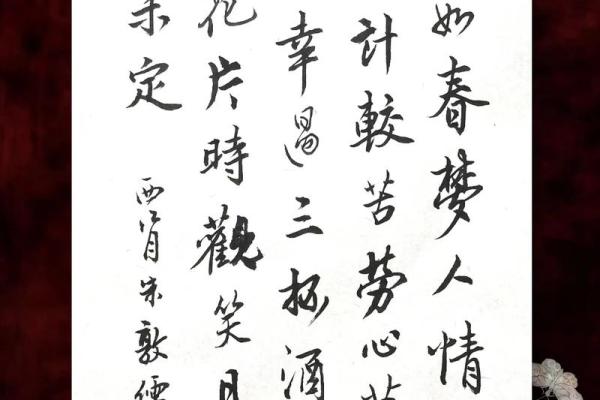 如春夢人情
計較苦劳心
幸遇三杯酒
花片時觀笑且
未定
西江月朱敦儒